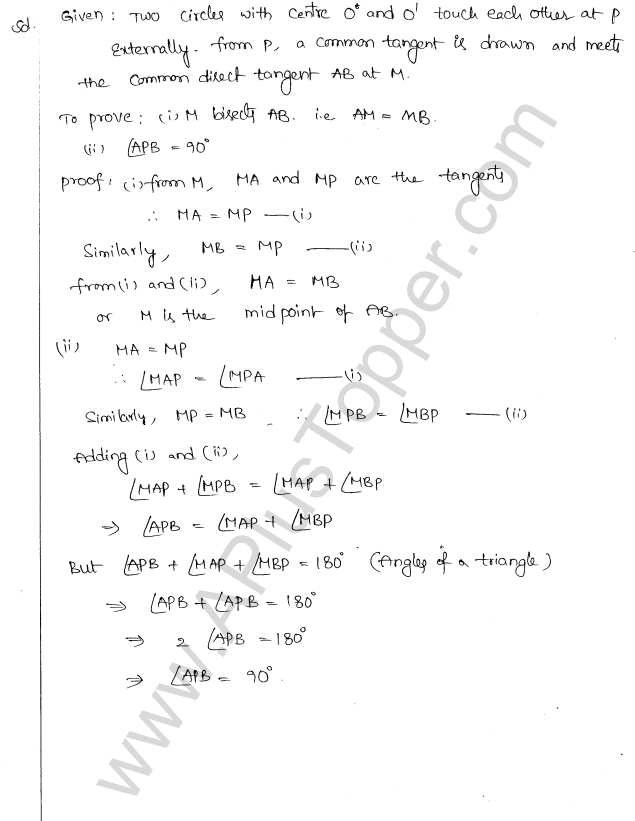 Sol.
Given : Two circles with centre O and O' touch each other at P
Externally. from P, a common tangent is drawn and meets
the common direct tangent AB at M.
To prove : (i) M bisects AB. i.e AM = MB.
(ii) ∠APB = 90°
proof : (i) from M, MA and MP are the tangents
∴ MA = MP —(i)
Similarly, MB = MP —(ii)
from (i) and (ii), MA = MB
or M is the midpoint of AB.
(ii) MA = MP
∴ ∠MAP = ∠MPA —(i)
Similarly, MP = MB ∴ ∠MPB = ∠MBP —(ii)
Adding (i) and (ii),
∠MAP + ∠MPB = ∠MAP + ∠MBP
⇒ ∠APB = ∠MAP + ∠MBP
But ∠APB + ∠MAP + ∠MBP = 180° (Angles of a triangle)
⇒ ∠APB + ∠APB = 180°
⇒ 2 ∠APB = 180°
⇒ ∠APB = 90°.
www.APlusTopper.com